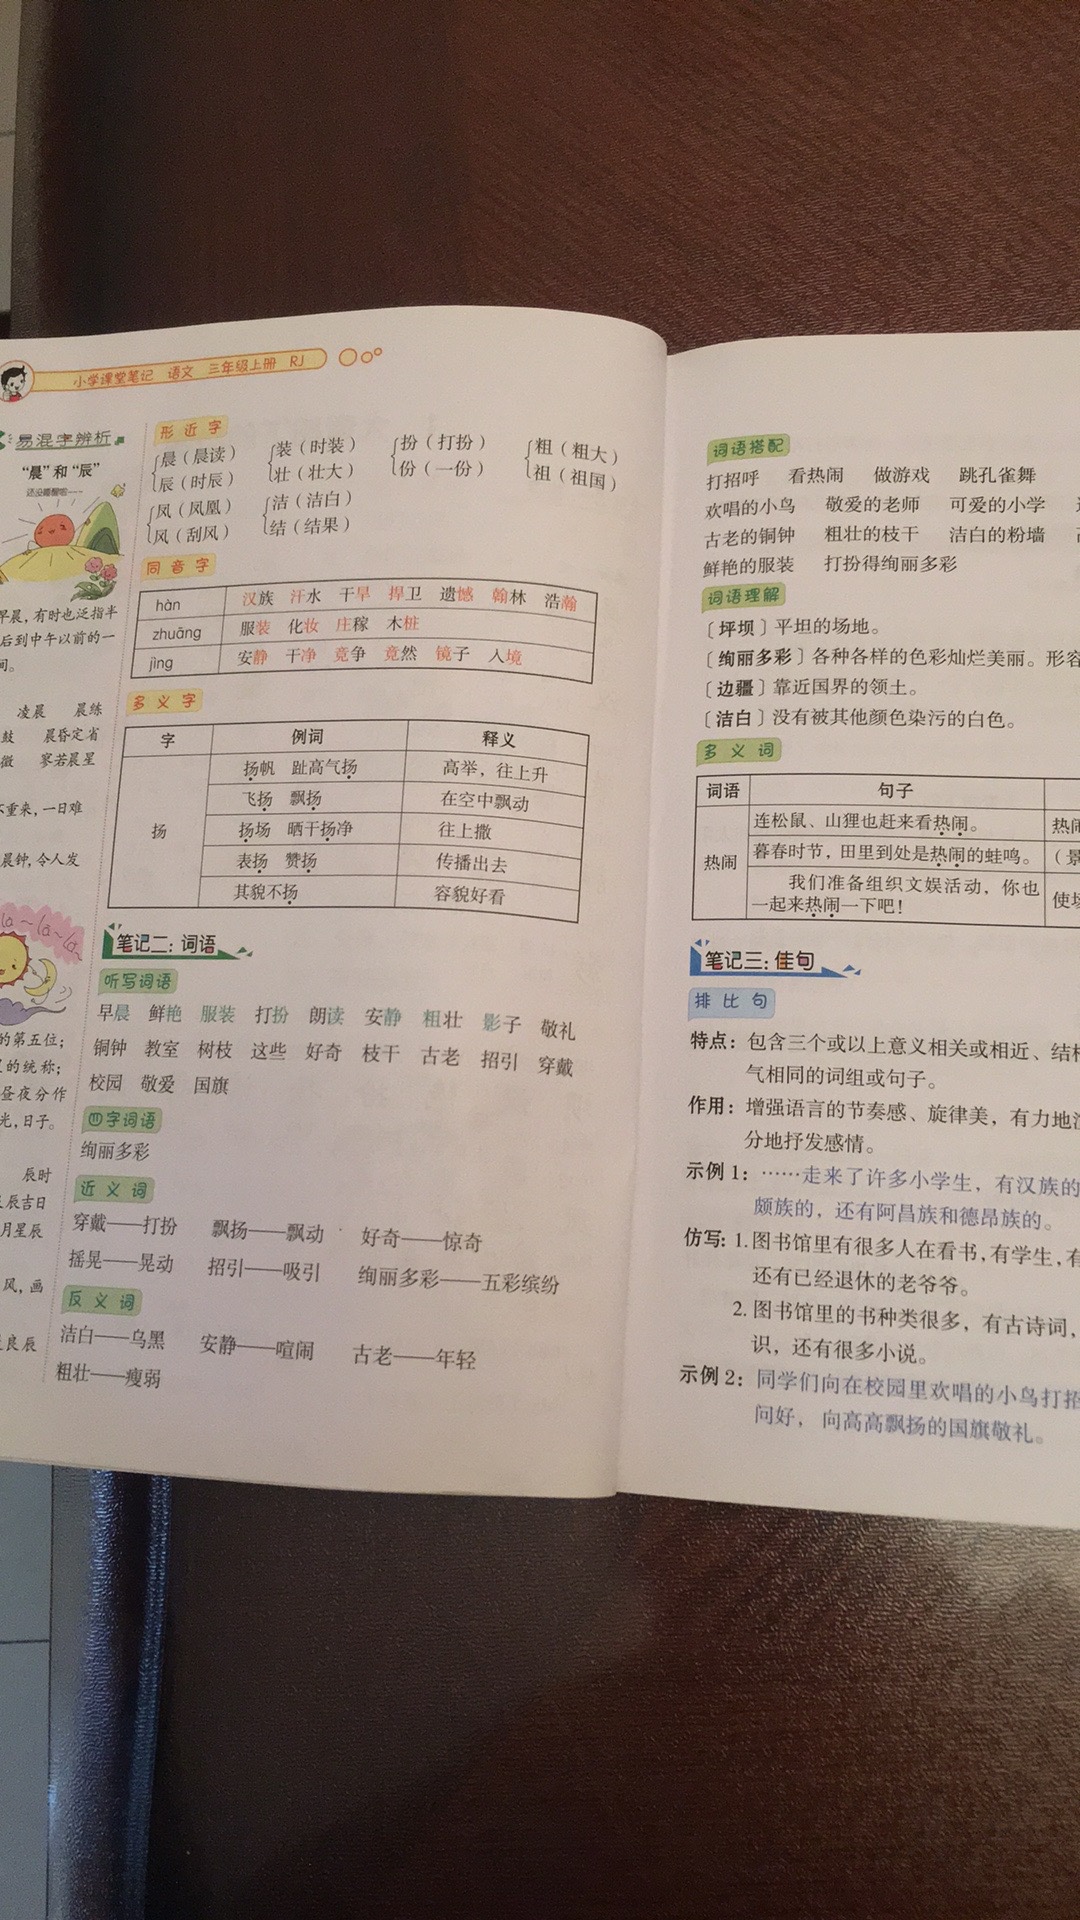 小学课堂笔记 语文 三年级上册 RJ
易混字辨析
“晨”和“辰”
早晨,有时也泛指半
后到中午以前的一
间。
凌晨 晨练
鼓 晨昏定省
微 寥若晨星
不重来,一日难
晨钟,令人发
la~la~la~
的第五位;
的统称;
昼夜分作
光,日子。
辰时
辰吉日
月星辰
风,画
良辰
形近字
晨(晨读) 装(时装) 扮(打扮) 粗(粗大)
辰(时辰) 壮(壮大) 份(一份) 祖(祖国)
凤(凤凰) 洁(洁白)
风(刮风) 结(结果)
同音字
hàn 汉族 汗水 干旱 捍卫 遗憾 翰林 浩瀚
zhuāng 服装 化妆 庄稼 木桩
jìng 安静 干净 竞争 竟然 镜子 入境
多义字
字 例词 释义
扬帆 趾高气扬 高举,往上升
飞扬 飘扬 在空中飘动
扬 扬场 晒干扬净 往上撒
表扬 赞扬 传播出去
其貌不扬 容貌好看
笔记二:词语
听写词语
早晨 鲜艳 服装 打扮 朗读 安静 粗壮 影子 敬礼
铜钟 教室 树枝 这些 好奇 枝干 古老 招引 穿戴
校园 敬爱 国旗
四字词语
绚丽多彩
近义词
穿戴——打扮 飘扬——飘动 好奇——惊奇
摇晃——晃动 招引——吸引 绚丽多彩——五彩缤纷
反义词
洁白——乌黑 安静——喧闹 古老——年轻
粗壮——瘦弱
词语搭配
打招呼 看热闹 做游戏 跳孔雀舞
欢唱的小鸟 敬爱的老师 可爱的小学
古老的铜钟 粗壮的枝干 洁白的粉墙
鲜艳的服装 打扮得绚丽多彩
词语理解
〔坪坝〕平坦的场地。
〔绚丽多彩〕各种各样的色彩灿烂美丽。形容
〔边疆〕靠近国界的领土。
〔洁白〕没有被其他颜色染污的白色。
多义词
词语 句子
连松鼠、山狸也赶来看热闹。 热闹
热闹 暮春时节,田里到处是热闹的蛙鸣。 (景
我们准备组织文娱活动,你也
一起来热闹一下吧! 使场
笔记三:佳句
排比句
特点:包含三个或以上意义相关或相近、结构
气相同的词组或句子。
作用:增强语言的节奏感、旋律美,有力地
分地抒发感情。
示例1:……走来了许多小学生,有汉族的
颇族的,还有阿昌族和德昂族的。
仿写:1.图书馆里有很多人在看书,有学生,有
还有已经退休的老爷爷。
2.图书馆里的书种类很多,有古诗词,
识,还有很多小说。
示例2:同学们向在校园里欢唱的小鸟打招
问好,向高高飘扬的国旗敬礼。